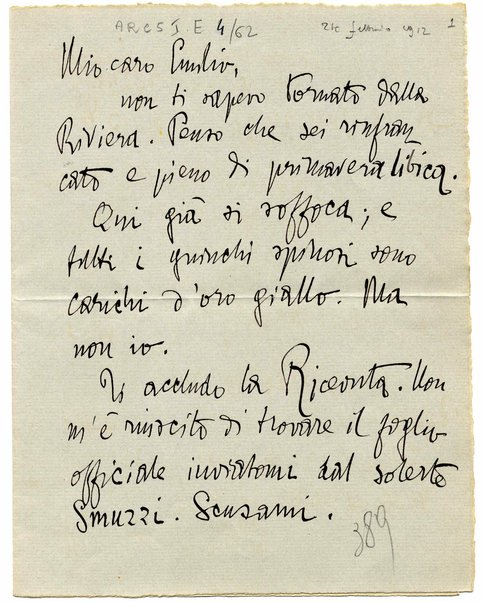 ARCS I. E 4/62
febbraio 1912 1
Mio caro Emilio,
non ti sapevo tornato dalla
Riviera. Penso che sei rinfran
cato e pieno di primavera libica.
Qui già si soffoca; e
tutti i giunchi spinosi sono
carichi d'oro giallo. Ma
non io.
Ti accludo la Ricevuta. Non
m'è riuscito di trovare il foglio
officiale inviatomi dal solerte
Smuzzi. Scusami.
389